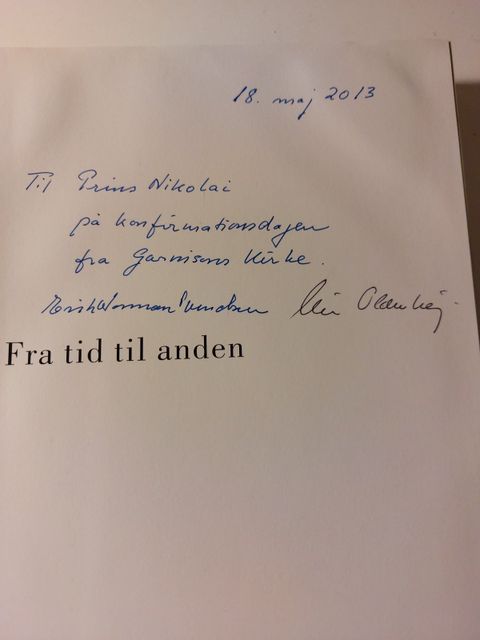 18. maj 2013
Til Prins Nikolai
på konfirmationsdagen
fra Garnisons Kirke.
Erik Norman Svendsen
Fra tid til anden